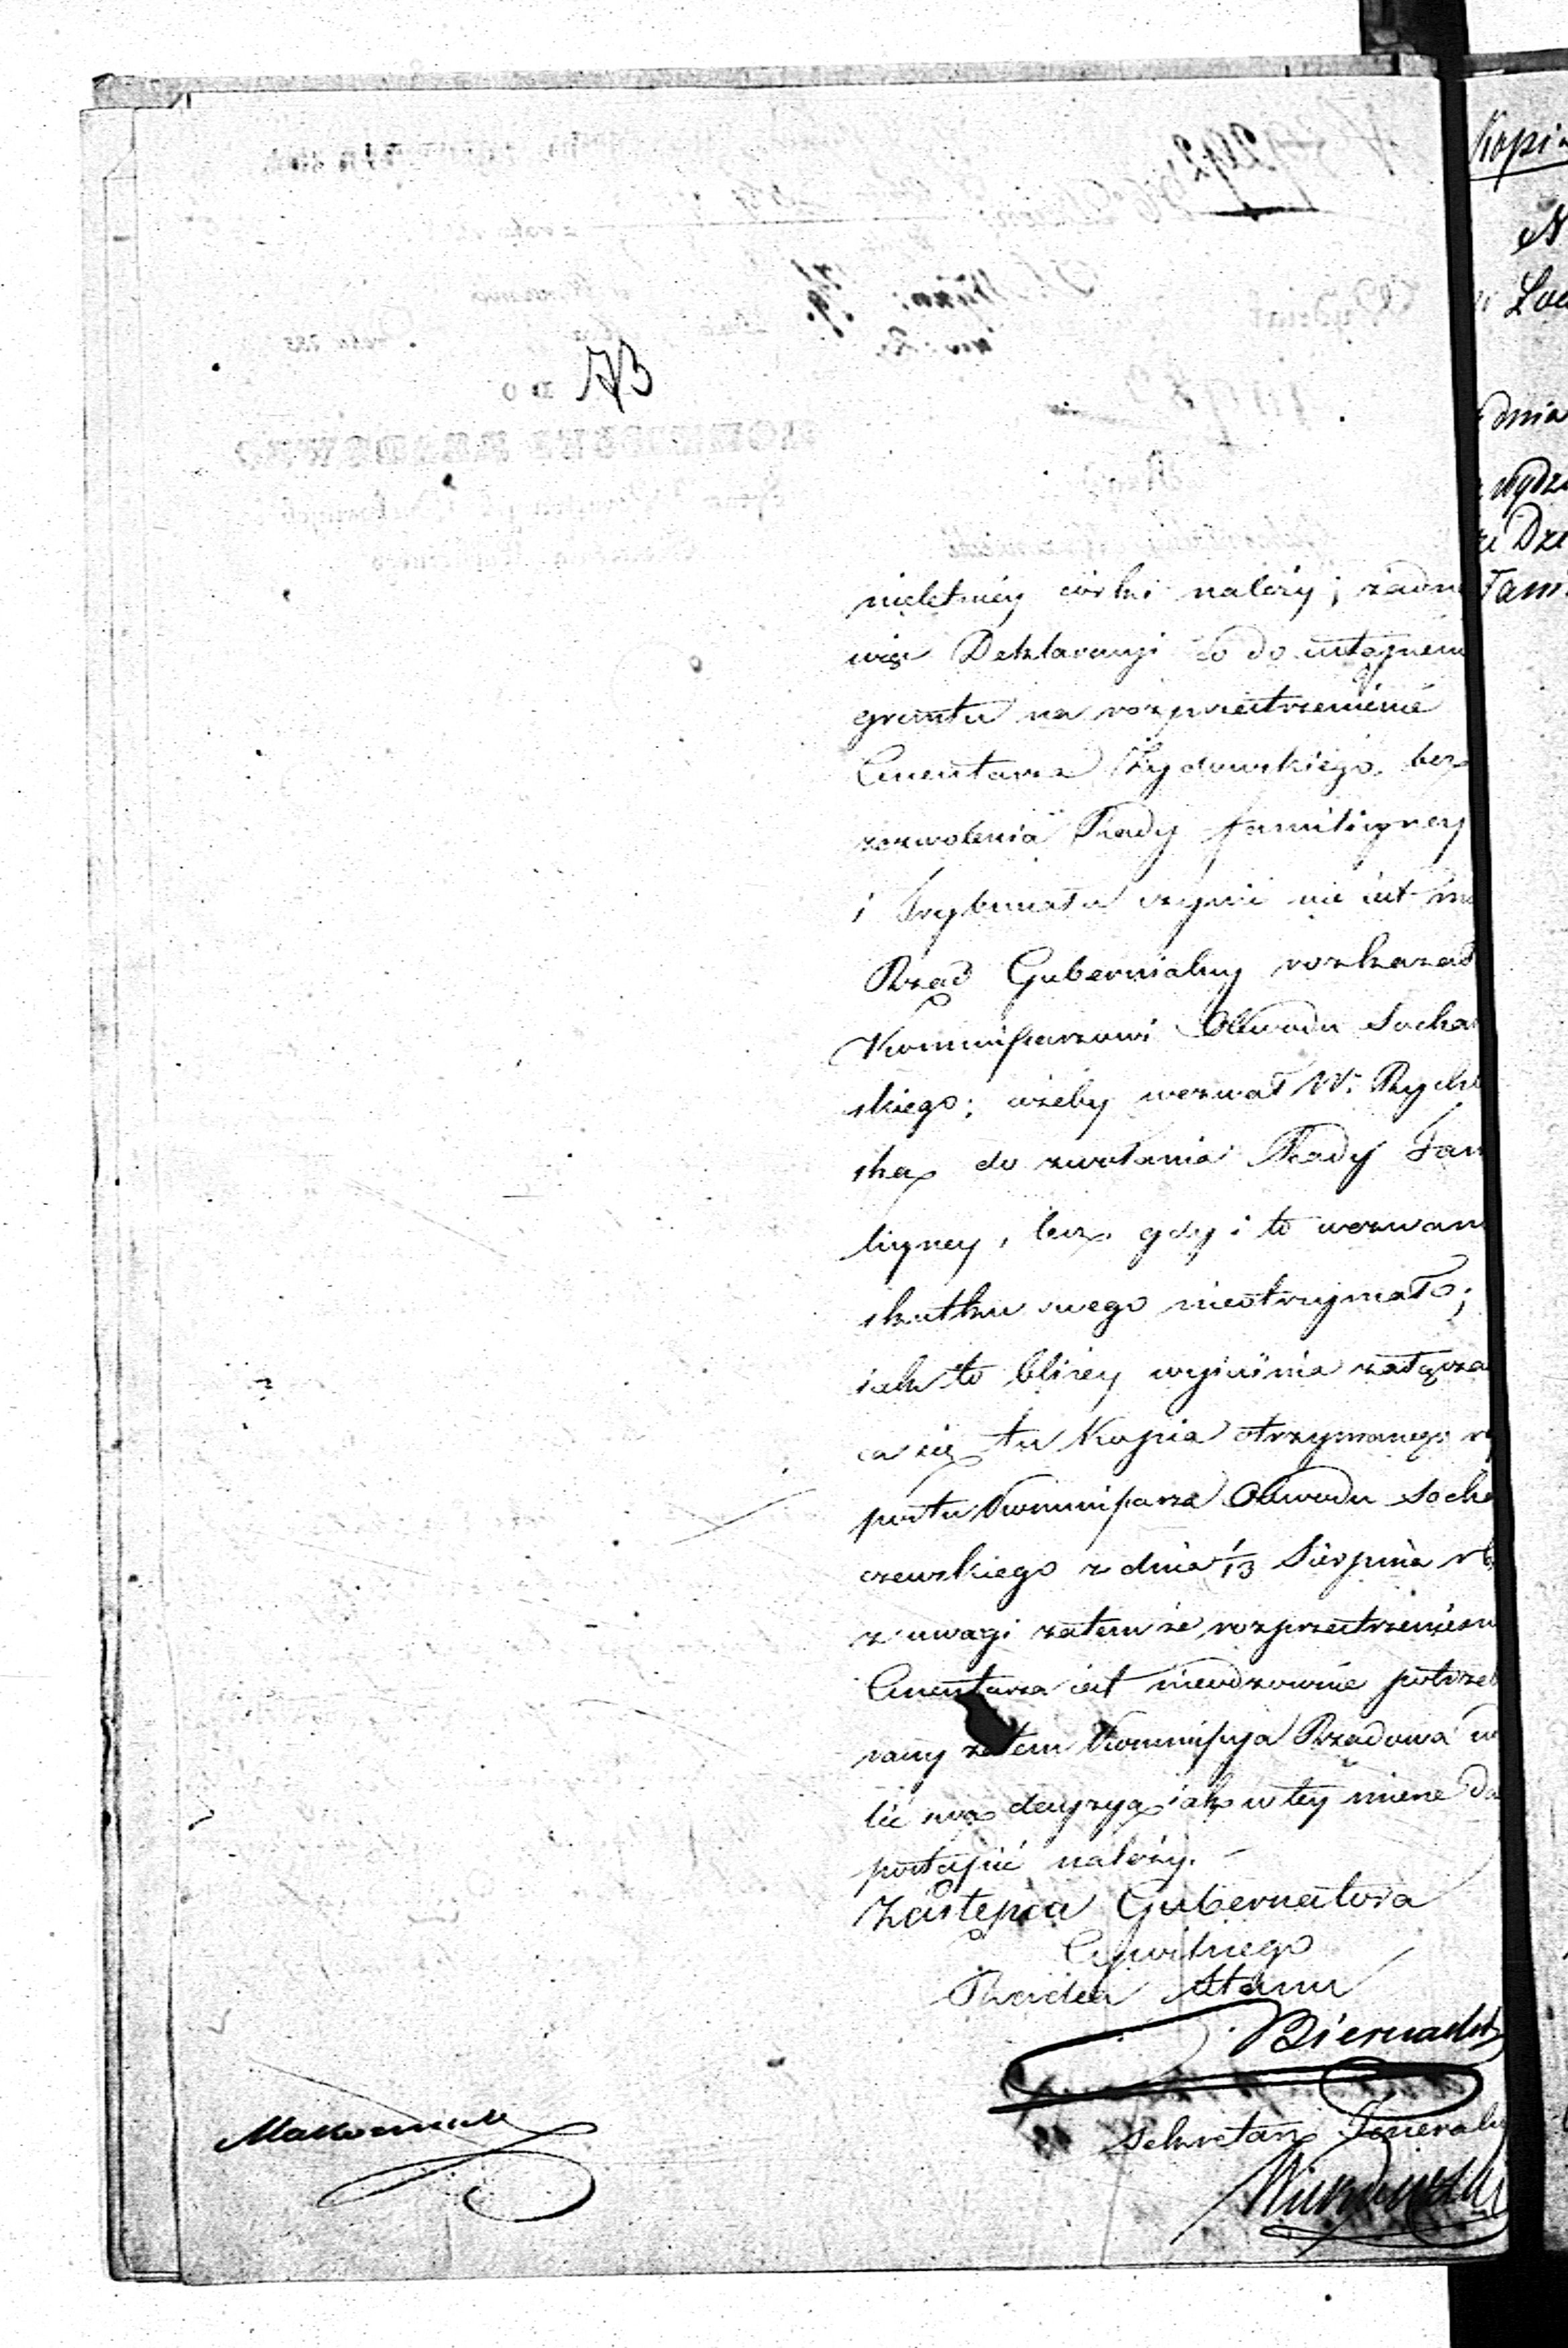 73
nieletniey córki należy; żadn
więc Deklaracyi co do
gruntu na rozprzestrzenienie
Cmentarza Żydowskiego, bez
zezwolenia Rady familijney
i Trybunału czynić nie iest
Rząd Gubernialny rozkazał
Kommissarzowi Obwodu Socha
skiego; ażeby wezwał W. Rych
ską do zwołania Rady Fam
liyney, lecz gdy i to wezwani
skutku swego nieotrzymało;
iak to bliżey wyiaśnia załącza
ca się tu Kopia otrzymanego ra
portu Kommissarza Obwodu Socha
czewskiego z dnia 1/13 Sierpnia rb
z uwagi zatem że rozprzestrzenien
Cmentarza iest nieodzownie potrzeb
raczy zatem Kommissyja Rządowa u
lić swą decyzyą iak w tey mierze da
postąpić należy. —
Zastępca Gubernatora
Cywilnego
Radca Stanu
Biernacki
Sekretarz Jeneraln
Kopi
N
dnia
ze Dze
Fam